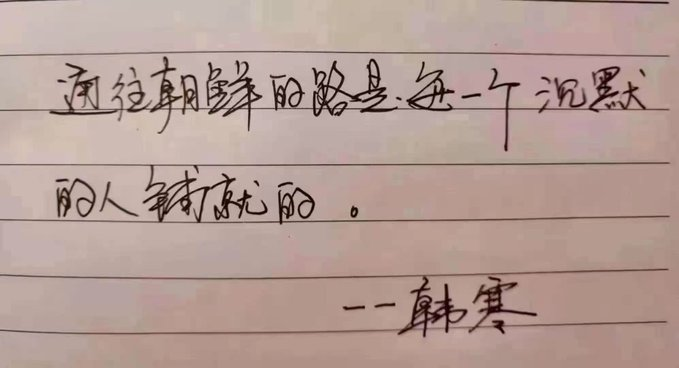 通往朝鲜的路是每一个沉默
的人铺就的。
——韩寒